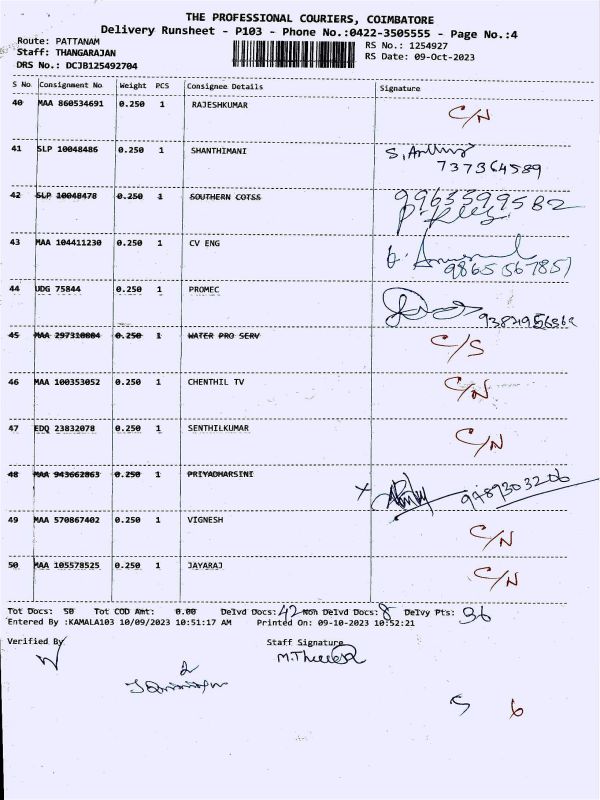 THE PROFESSIONAL COURIERS, COIMBATORE
Delivery Runsheet - P103 - Phone No.:0422-3505555 - Page No.:4
Route: PATTANAM RS No.: 1254927
Staff: THANGARAJAN RS Date: 09-Oct-2023
DRS No.: DCJB125492704
S No Consignment No Weight PCS Consignee Details Signature
40 MAA 860534691 0.250 1 RAJESHKUMAR C/N
41 SLP 10048486 0.250 1 SHANTHIMANI
737364589
42 SLP 10048478 0.250 1 SOUTHERN COTSS 9963599582
43 MAA 104411230 0.250 1 CV ENG
9865567851
44 UDG 75844 0.250 1 PROMEC
45 MAA 297310804 0.250 1 WATER PRO SERV C/S
46 MAA 100353052 0.250 1 CHENTHIL TV C/N
47 EDQ 23832078 0.250 1 SENTHILKUMAR C/N
48 MAA 943662863 0.250 1 PRIYADHARSINI 9789303206
49 MAA 570867402 0.250 1 VIGNESH C/N
50 MAA 105578525 0.250 1 JAYARAJ C/N
Tot Docs: 50 Tot COD Amt: 0.00 Delvd Docs: 42 Non Delvd Docs: 8 Delvy Pts: 36
Entered By :KAMALA103 10/09/2023 10:51:17 AM Printed On: 09-10-2023 10:52:21
Verified By Staff Signature
5 6